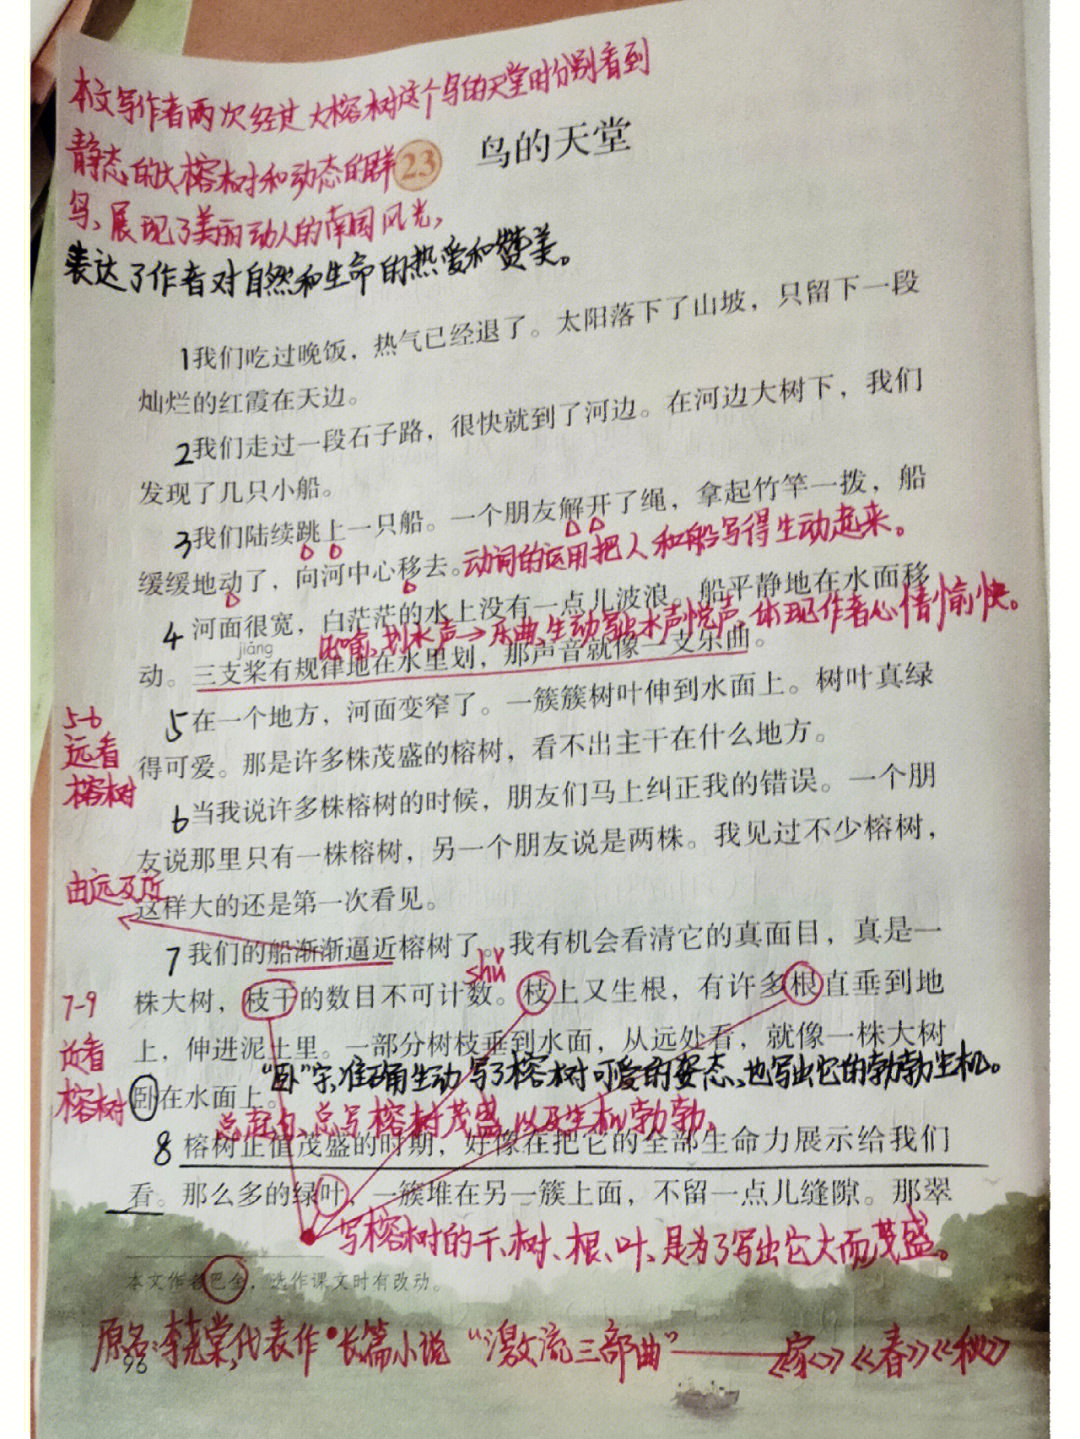 本文写作者两次经过大榕树这个鸟的天堂时分别看到
静态的大榕树和动态的群
23 鸟的天堂
鸟、展现了美丽动人的南国风光,
表达了作者对自然和生命的热爱和赞美。
1我们吃过晚饭，热气已经退了。太阳落下了山坡，只留下一段
灿烂的红霞在天边。
2我们走过一段石子路，很快就到了河边。在河边大树下，我们
发现了几只小船。
3我们陆续跳上一只船。一个朋友解开了绳，拿起竹竿一拨，船
缓缓地动了，向河中心移去。
动词的运用把人和船写得生动起来。
4河面很宽，白茫茫的水上没有一点儿波浪。船平静地在水面移
比喻、划水声→乐曲、生动写出水声悦声、体现作者心情愉快。
jiǎng
动。三支桨有规律地在水里划，那声音就像一支乐曲。
5-6
远看
榕树
5在一个地方，河面变窄了。一簇簇树叶伸到水面上。树叶真绿
得可爱。那是许多株茂盛的榕树，看不出主干在什么地方。
6当我说许多株榕树的时候，朋友们马上纠正我的错误。一个朋
友说那里只有一株榕树，另一个朋友说是两株。我见过不少榕树，
由远及近
这样大的还是第一次看见。
7我们的船渐渐逼近榕树了。我有机会看清它的真面目，真是一
shǔ
7-9
近看
榕树
株大树，枝干的数目不可计数。枝上又生根，有许多根直垂到地
上，伸进泥土里。一部分树枝垂到水面，从远处看，就像一株大树
"卧"字、准确生动写了榕树可爱的姿态、也写出它的勃勃生机。
卧在水面上。
总起句、总写榕树茂盛以及生机勃勃。
8榕树正值茂盛的时期，好像在把它的全部生命力展示给我们
看。那么多的绿叶，一簇堆在另一簇上面，不留一点儿缝隙。那翠
写榕树的干、树、根、叶、是为了写出它大而茂盛。
本文作者巴金，选作课文时有改动。
原名:李尧棠,代表作•长篇小说 "激流三部曲"——《家》《春》《秋》
96